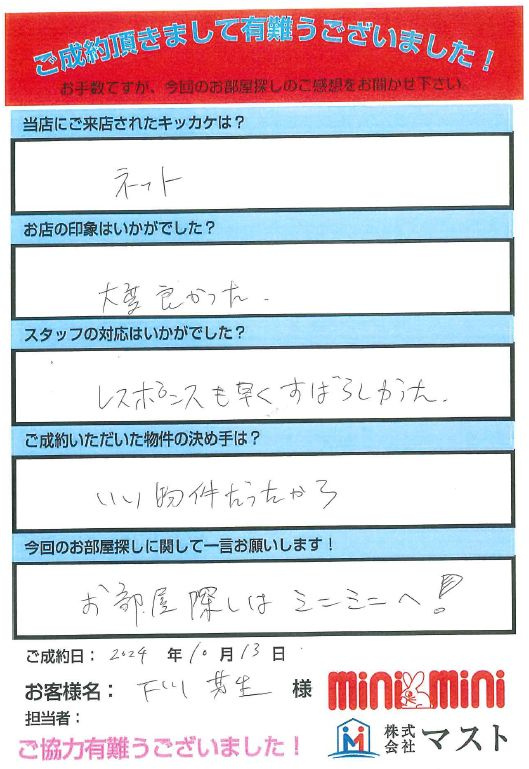 ご成約頂きまして有難うございました！
お手数ですが、今回のお部屋探しのご感想をお聞かせ下さい
当店にご来店されたキッカケは？
ネット
お店の印象はいかがでした？
大変良かった.
スタッフの対応はいかがでした？
レスポンスも早くすばらしかった.
ご成約いただいた物件の決め手は？
いい物件だったから
今回のお部屋探しに関して一言お願いします！
お部屋探しはミニミニへ！
ご成約日： 2024 年 10 月 13 日
お客様名： 下川 様
mini mini
担当者：
株式会社 マスト
ご協力有難うございました！